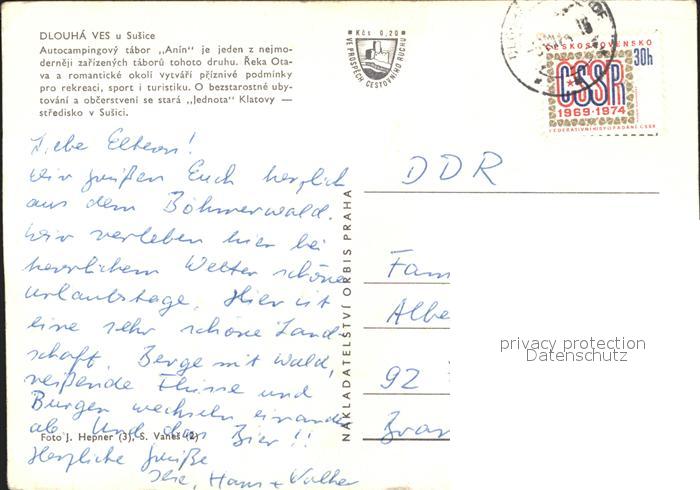 DLOUHÁ VES u Sušice
Autocampingový tábor „Anín" je jeden z nejmo-
derněji zařízených táborů tohoto druhu. Řeka Ota-
va a romantické okolí vytváří příznivé podmínky
pro rekreaci, sport i turistiku. O bezstarostné uby-
tování a občerstvení se stará „Jednota" Klatovy —
středisko v Sušici.
Kčs 0,20
VE PROSPĚCH CESTOVNÍHO RUCHU
ČESKOSLOVENSKO
30h
ČSSR
1969-1974
FEDERATIVNÍ USPOŘÁDÁNÍ ČSSR
Liebe Eltern!
Wir grüßen Euch herzlich
aus dem Böhmerwald.
Wir verleben hier bei
herrlichem Wetter schöne
Urlaubstage. Hier ist
eine sehr schöne Land
schaft. Berge mit Wald,
reißende Flüsse und
Burgen wechseln einander
ab. Und das Bier!!
Herzliche Grüße
Hans + Walther
Foto J. Hepner (3), S. Vaněš (2)
NAKLADATELSTVÍ ORBIS PRAHA
DDR
Fam
Albe
92
Bran
privacy protection
Datenschutz